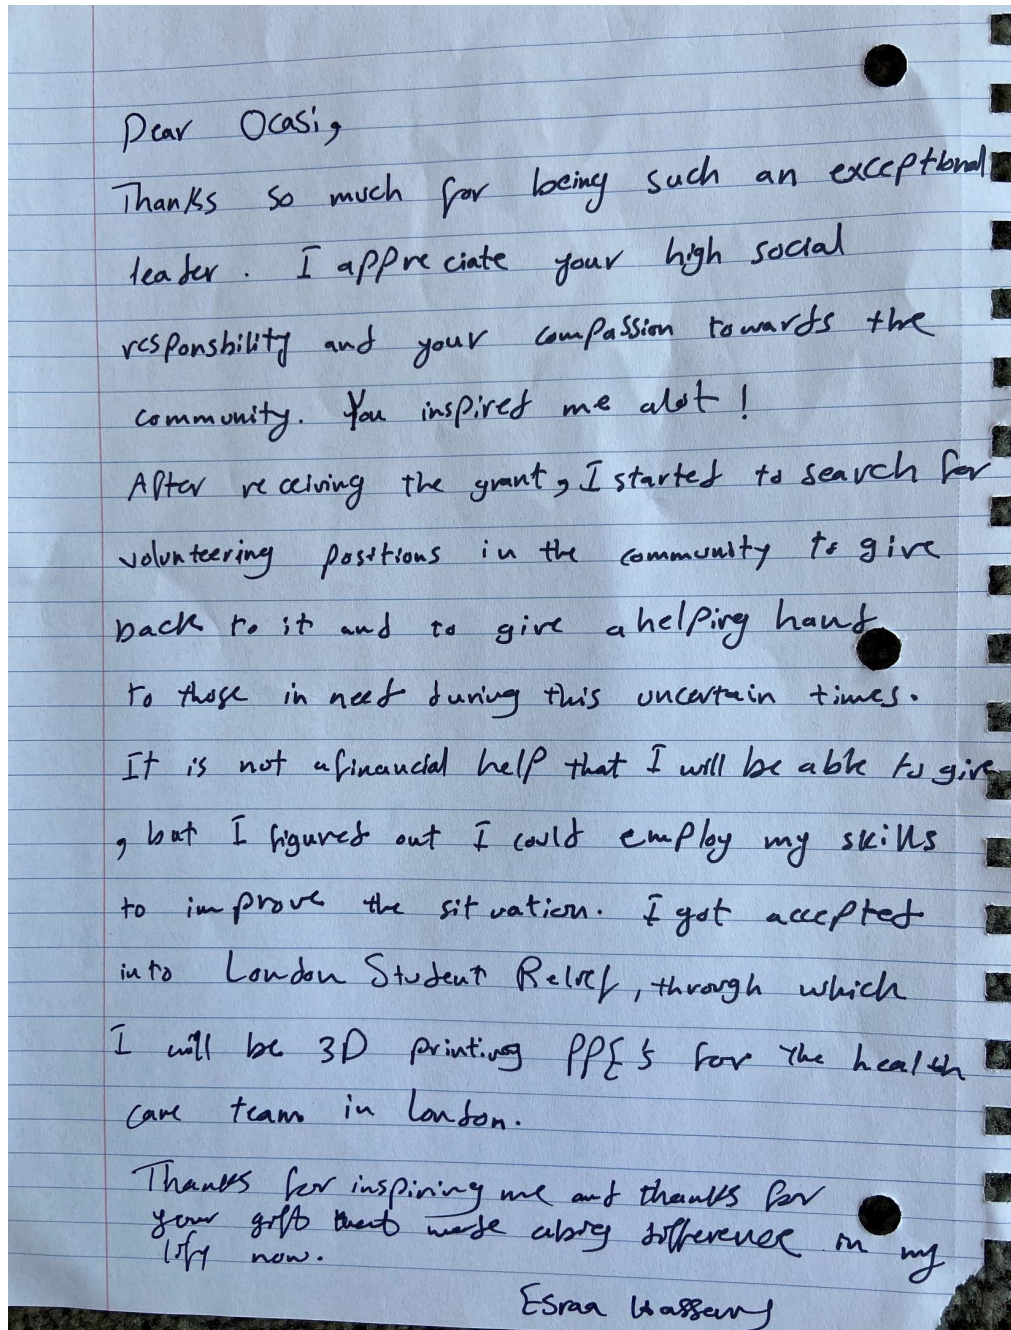 Dear Ocasi,
Thanks so much for being such an exceptional
leader. I appreciate your high social
responsbility and your compassion towards the
community. You inspired me alot!
After receiving the grant, I started to search for
volunteering positions in the community to give
back to it and to give a helping hand
to those in need during this uncertain times.
It is not a financial help that I will be able to give
, but I figured out I could employ my skills
to improve the situation. I got accepted
into London Student Relief, through which
I will be 3D printing PPE's for the health
care team in London.
Thanks for inspiring me and thanks for
your gift that made abig difference in my
life now.
Esraa